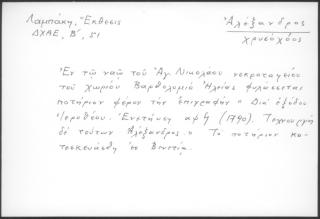 Λαμπάκη, Ἔκθεσις
ΔΧΑΕ, Β΄, 51
Ἀλέξανδρος
χρυσοχόος
Ἐν τῷ ναῷ τοῦ Ἁγ. Νικολάου νεκροταφείου
τοῦ χωρίου Βαρθολομιὸ Ἠλείας φυλάσσεται
ποτήριον φέρον τὴν ἐπιγραφὴν « Διὰ ἐξόδου
Ἱεροθέου. Ἐνετίησιν αψϟ (1790). Τεχνουργὴ
δὲ τούτων Ἀλέξανδρος.» Τὸ ποτήριον κα-
τεσκευάσθη ἐν Βενετίᾳ.